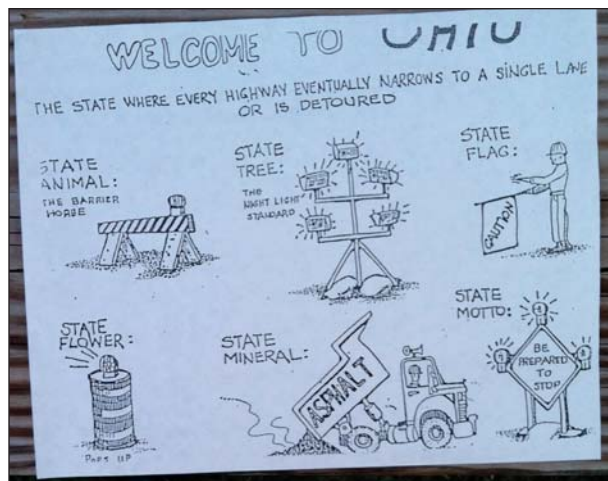 WELCOME TO OHIO
THE STATE WHERE EVERY HIGHWAY EVENTUALLY NARROWS TO A SINGLE LANE
OR IS DETOURED
STATE
ANIMAL:
THE BARRIER
HORSE
STATE
TREE:
THE
NIGHT LIGHT
STANDARD
STATE
FLAG:
CAUTION
STATE
FLOWER:
POPS UP
STATE
MINERAL:
ASPHALT
STATE
MOTTO:
BE
PREPARED
TO
STOP